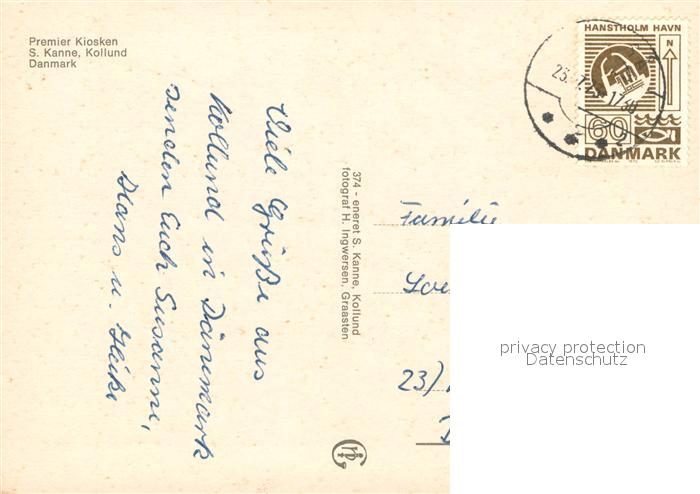 Premier Kiosken
S. Kanne, Kollund
Danmark
HANSTHOLM HAVN
N
60
DANMARK
Viele Grüße aus
Kollund in Dänemark
senden Euch Susanne,
Hans u. Heike
374 - eneret S. Kanne, Kollund
fotograf H. Ingwersen, Graasten
Familie
23/
privacy protection
Datenschutz